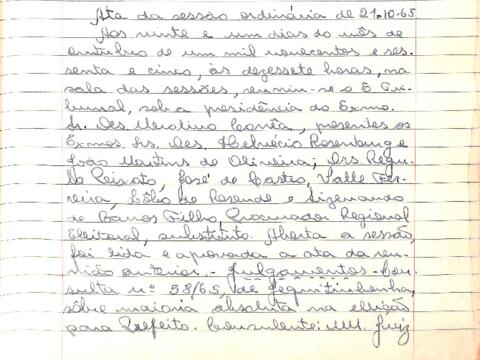 Ata da sessão ordinária de 21-10-65
Aos vinte e um dias do mês de
outubro de um mil novecentos e ses-
senta e cinco, às dezessete horas, na
sala das sessões, reuniu-se o E Tri-
bunal, sob a presidência do Exmo.
Sr. Des. Merolino Corrêa, presentes os
Exmos. Srs. Des. Helvécio Rosenburg e
João Martins de Oliveira; Drs. Régu-
lo Peixoto, José de Castro, Valle Fer-
reira, Lélio de Rezende e Sizenando
de Barros Filho, Procurador Regional
Eleitoral, substituto. Aberta a sessão,
foi lida e aprovada a ata da reu-
nião anterior. - Julgamentos - Con-
sulta nº 58/65, de Jequitinhonha,
sôbre maioria absoluta na eleição
para Prefeito. Consulente: MM. Juiz